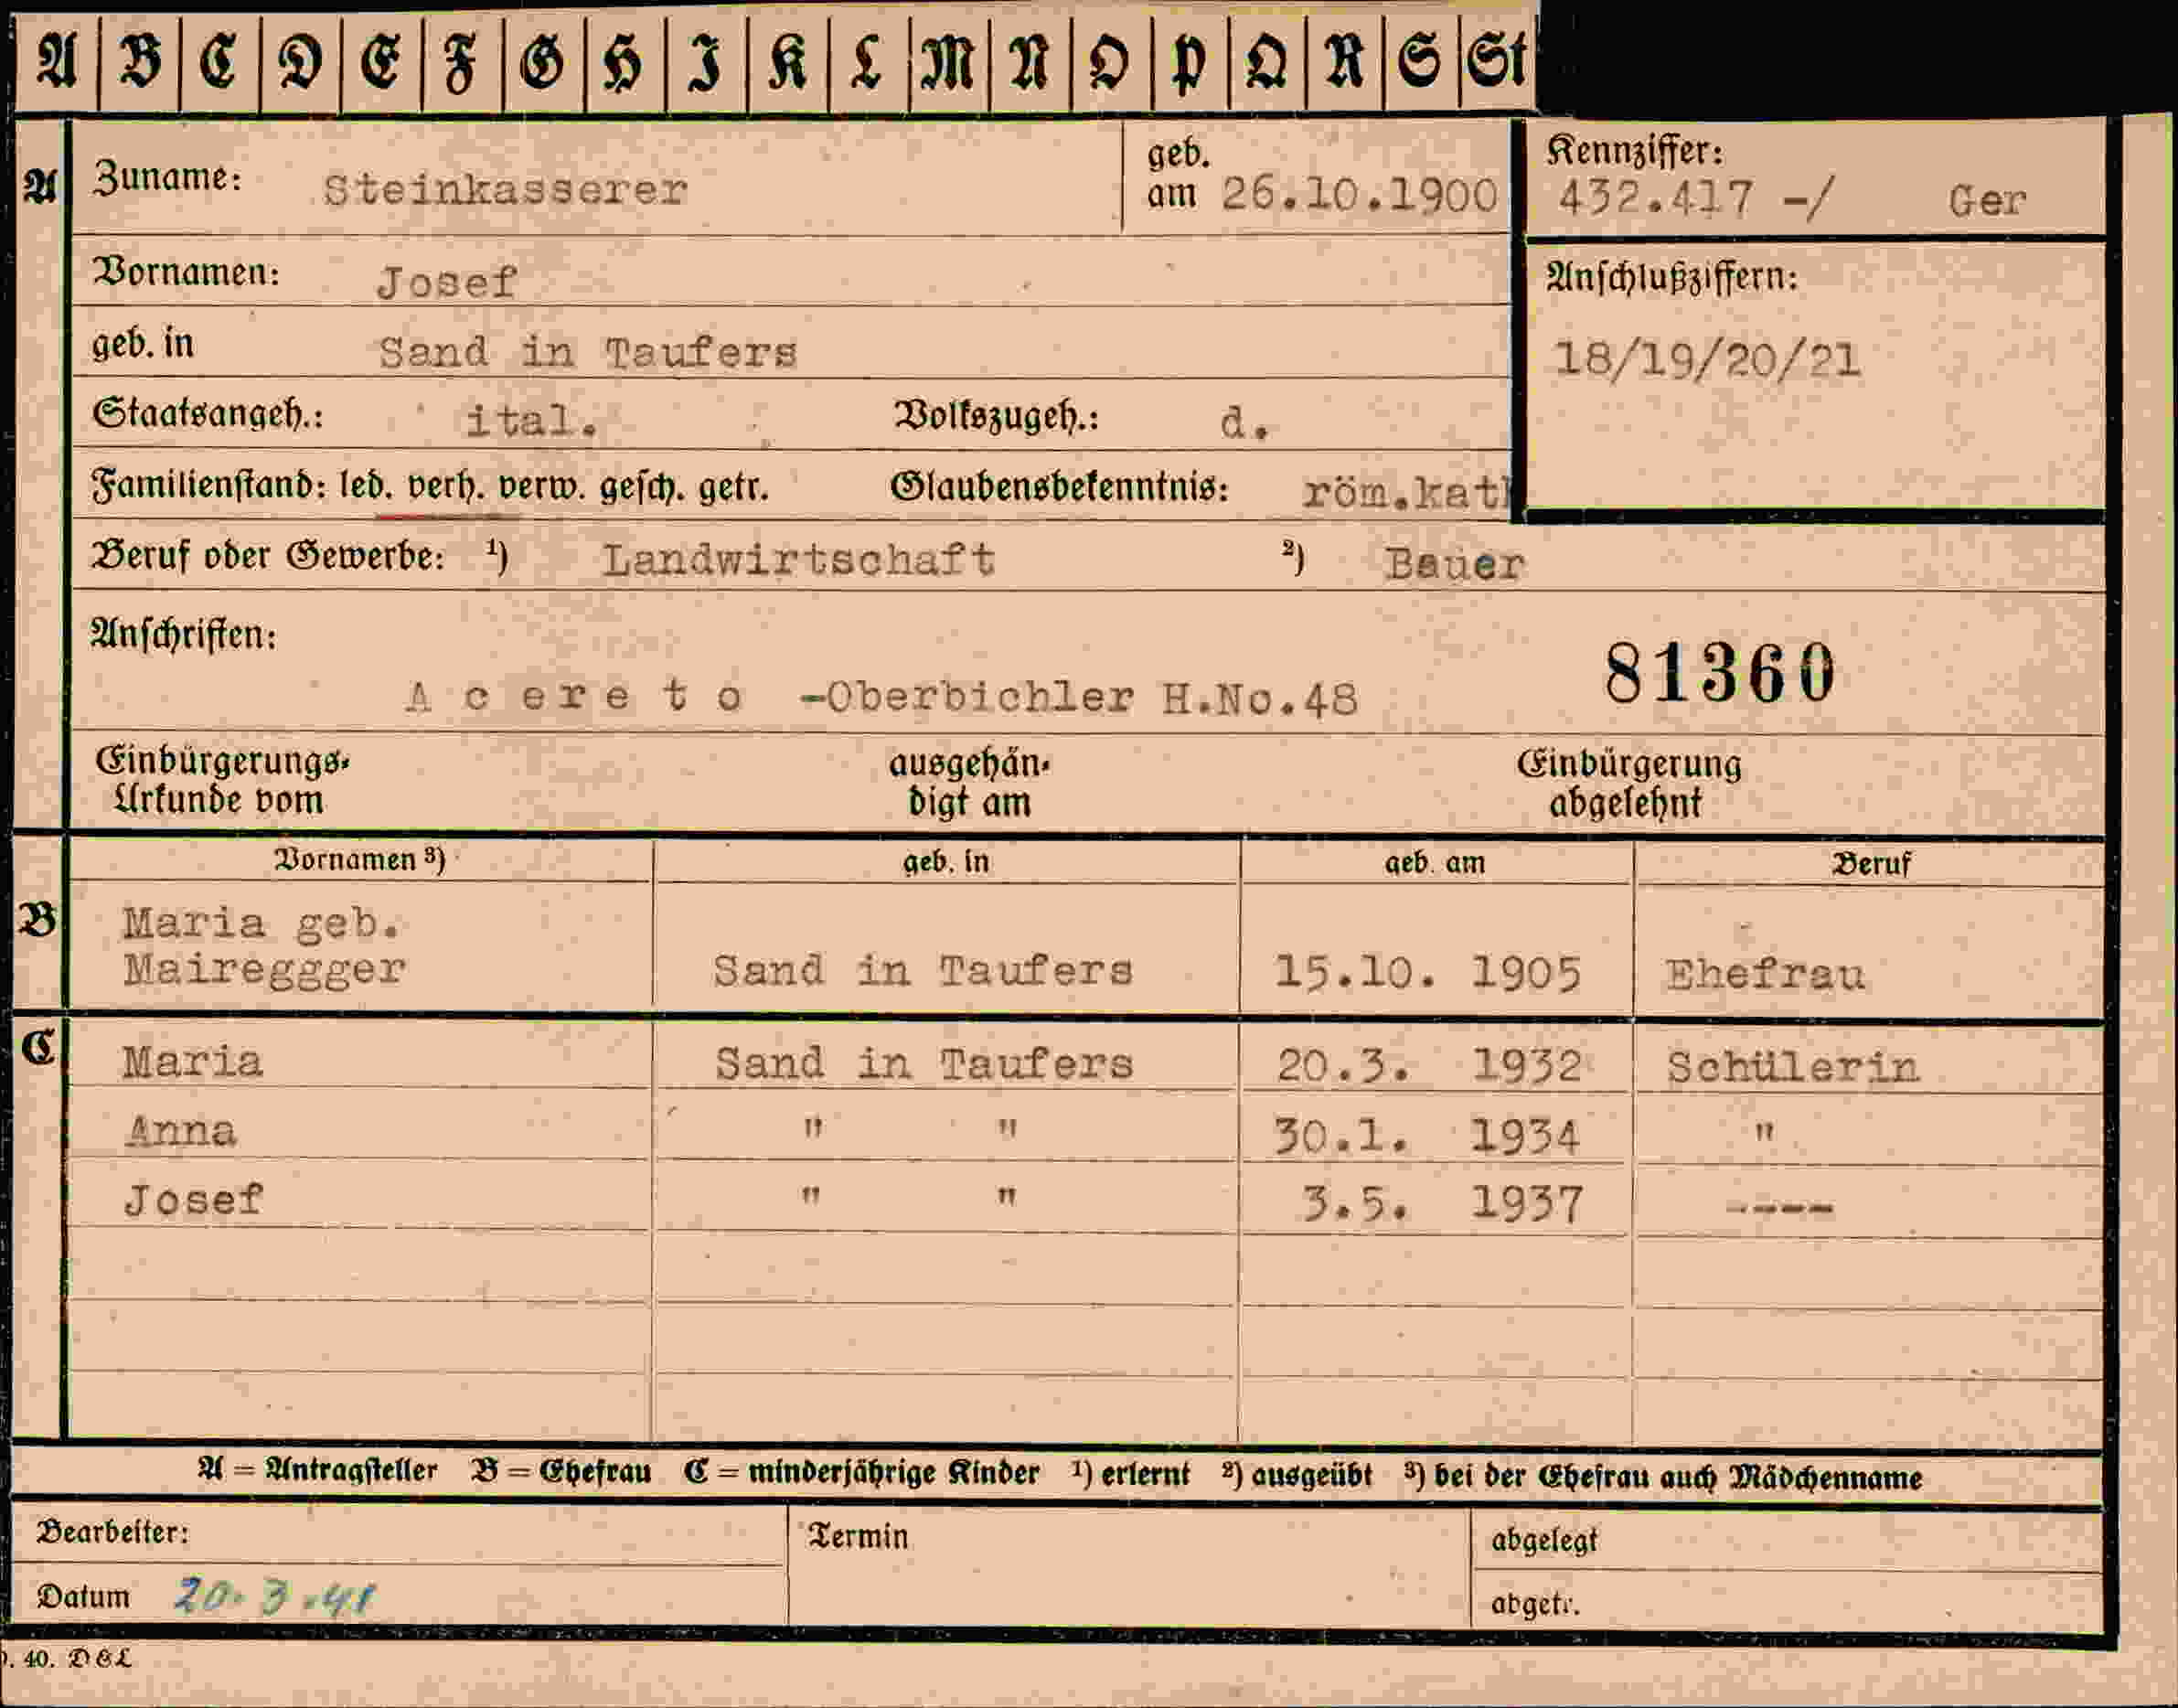 A B C D E F G H I K L M N O P Q R S St
A Zuname: Steinkasserer geb. am 26.10.1900
Kennziffer:
432.417 -/ Ger
Vornamen: Josef
Anschlußziffern:
18/19/20/21
geb. in Sand in Taufers
Staatsangeh.: ital. Volkszugeh.: d.
Familienstand: led. verh. verw. gesch. getr. Glaubensbekenntnis: röm.kath
Beruf oder Gewerbe: ¹) Landwirtschaft ²) Bauer
Anschriften:
81360
A c e r e t o -Oberbichler H.No.48
Einbürgerungs- ausgehän- Einbürgerung
Urkunde vom digt am abgelehnt
Vornamen ³) geb. in geb. am Beruf
B Maria geb.
Maireggger Sand in Taufers 15.10. 1905 Ehefrau
C Maria Sand in Taufers 20.3. 1932 Schülerin
Anna " " 30.1. 1934 "
Josef " " 3.5. 1937 ----
A = Antragsteller B = Ehefrau C = minderjährige Kinder ¹) erlernt ²) ausgeübt ³) bei der Ehefrau auch Mädchenname
Bearbeiter: Termin abgelegt
Datum 20.3.41 abgetr.
. 40. DEL